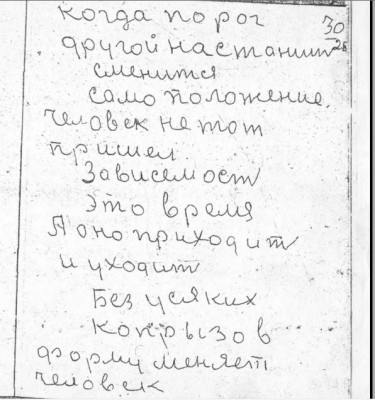 когда порог
30
другой настанит
28
сменится
само положение.
человек не тот
пришел.
Зависемост
это время
А оно приходит
и уходит
Без усяких
копрызов
форму меняет
человек